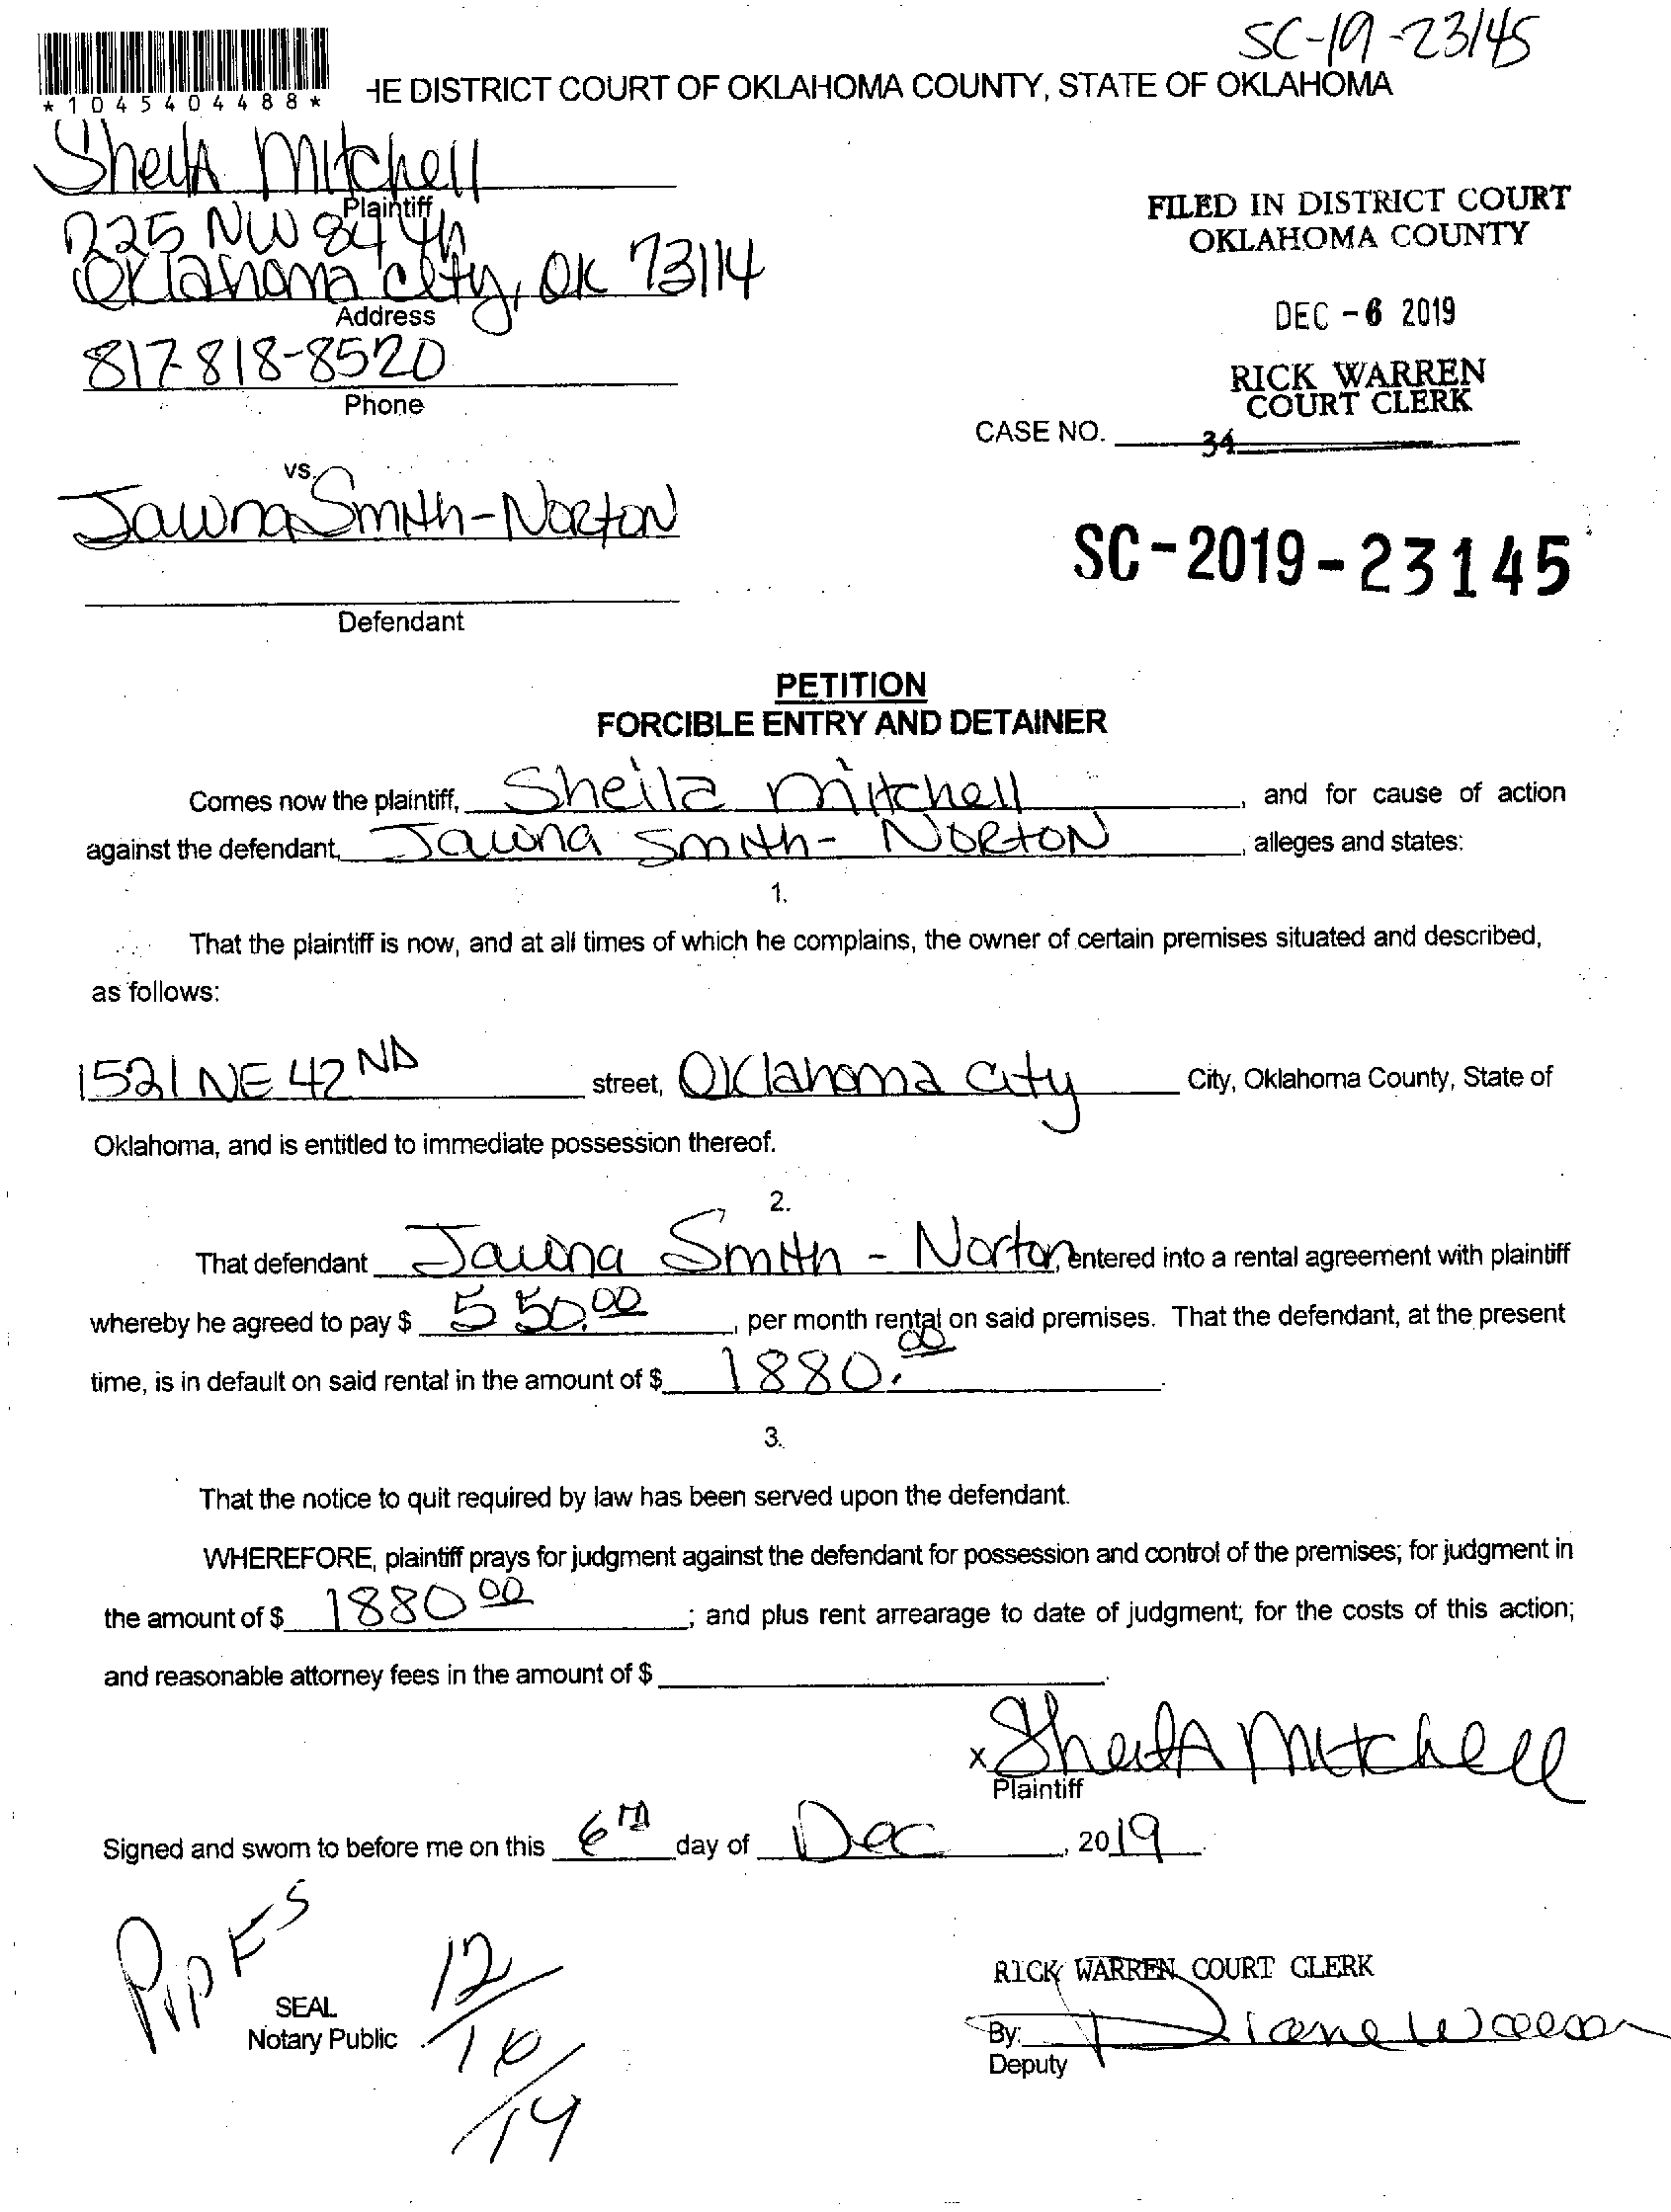 SC-19-23145
*1045404488*
HE DISTRICT COURT OF OKLAHOMA COUNTY, STATE OF OKLAHOMA
Sheila Mitchell
Plaintiff
225 NW 84th
Oklahoma City, OK 73114
Address
817-818-8520
Phone
FILED IN DISTRICT COURT
OKLAHOMA COUNTY
DEC -6 2019
RICK WARREN
COURT CLERK
CASE NO.
34
vs.
Jawna Smith-Norton
Defendant
SC-2019-23145
PETITION
FORCIBLE ENTRY AND DETAINER
Comes now the plaintiff, Sheila Mitchell, and for cause of action
against the defendant, Jawna Smith-Norton, alleges and states:
1.
That the plaintiff is now, and at all times of which he complains, the owner of certain premises situated and described,
as follows:
1521 NE 42ND street, Oklahoma City City, Oklahoma County, State of
Oklahoma, and is entitled to immediate possession thereof.
2.
That defendant Jawna Smith - Norton, entered into a rental agreement with plaintiff
whereby he agreed to pay $ 550.00, per month rental on said premises. That the defendant, at the present
time, is in default on said rental in the amount of $ 1880.00.
3.
That the notice to quit required by law has been served upon the defendant.
WHEREFORE, plaintiff prays for judgment against the defendant for possession and control of the premises; for judgment in
the amount of $ 1880 00; and plus rent arrearage to date of judgment; for the costs of this action;
and reasonable attorney fees in the amount of $ .
x Sheila Mitchell
Plaintiff
Signed and sworn to before me on this 6th day of Dec, 2019.
PIPES
12/16/19
SEAL
Notary Public
RICK WARREN COURT CLERK
By: Diane
Deputy